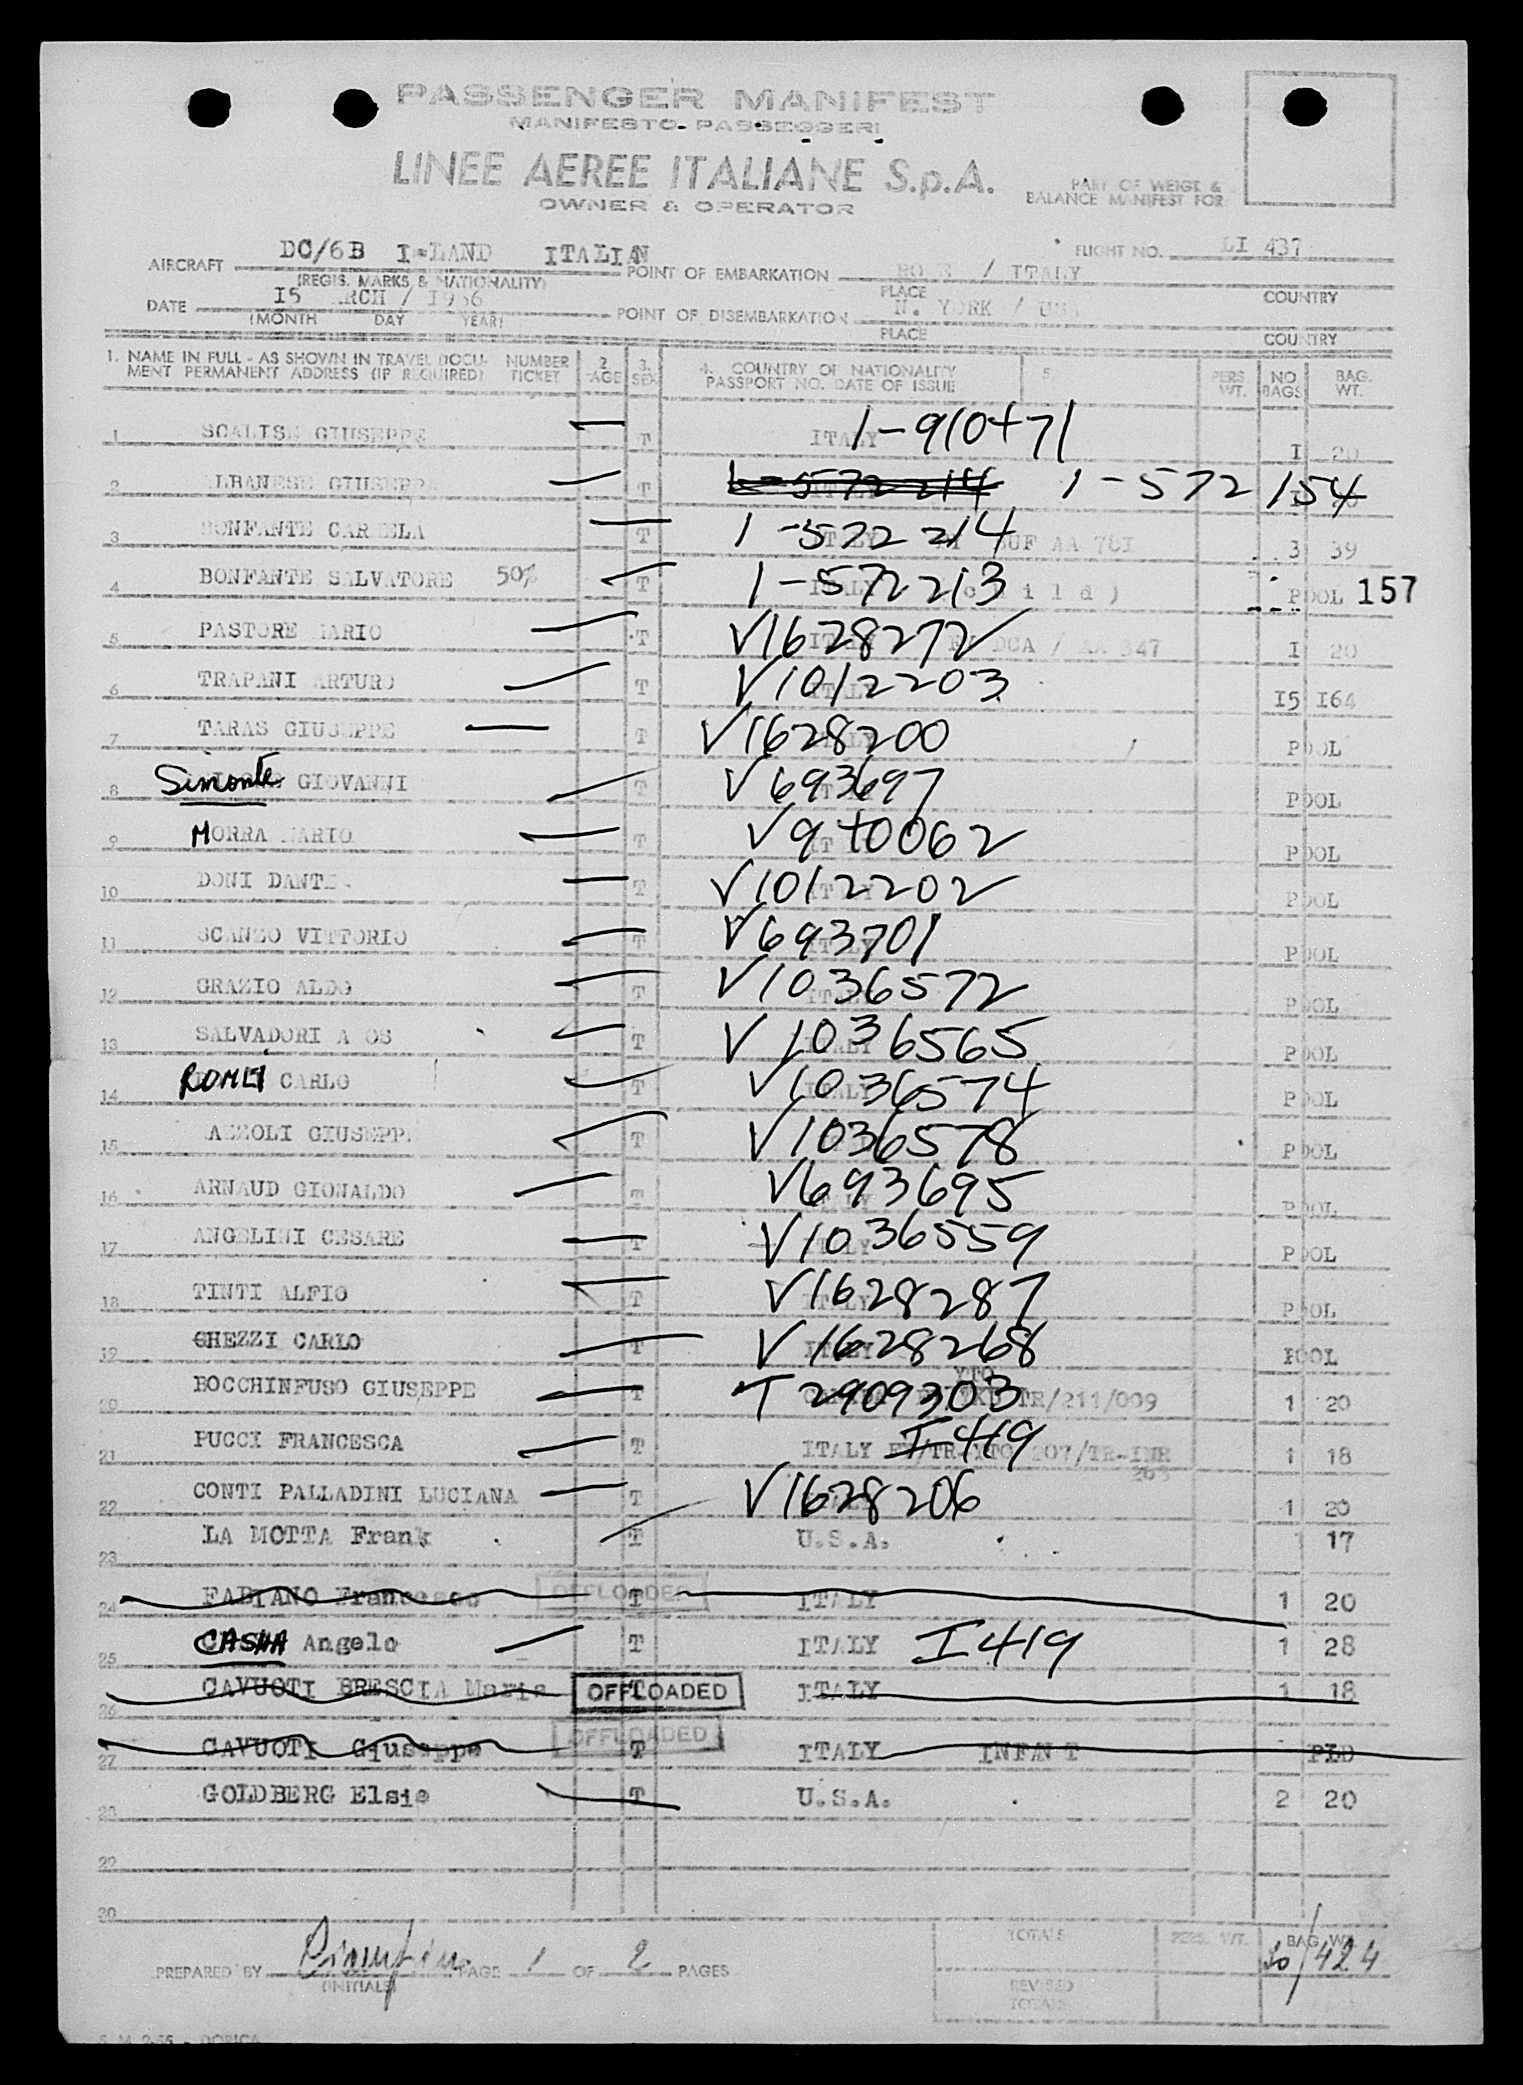 PASSENGER MANIFEST
MANIFESTO PASSEGGERI
LINEE AEREE ITALIANE S.p.A.
OWNER & OPERATOR
PART OF WEIGT &
BALANCE MANIFEST FOR
AIRCRAFT DC/6B I-LAND ITALIAN
(REGIS. MARKS & NATIONALITY)
FLIGHT NO. LI 437
POINT OF EMBARKATION / ITALY
PLACE COUNTRY
DATE I5 ARCH / I956
(MONTH DAY YEAR)
POINT OF DISEMBARKATION N. YORK / USA
PLACE COUNTRY
1. NAME IN FULL - AS SHOWN IN TRAVEL DOCU- NUMBER 2. 3. 4. COUNTRY OF NATIONALITY 5. PERS NO BAG.
MENT PERMANENT ADDRESS (IF REQUIRED) TICKET AGE SEX PASSPORT NO. DATE OF ISSUE WT. BAGS WT.
1 SCALISE GIUSEPPE T ITALY 1-910+71 I 20
2 LBANESE GIUSEPPE T 1-572214 1-572154
3 BONFANTE CARMELA T 1-572214 AA 70I 3 39
4 BONFANTE SALVATORE 50% T 1-572213 (c h i l d) POOL 157
5 PASTORE MARIO T V1628272 DCA / 347 I 20
6 TRAPANI ARTURO T V1012203 I5 I64
7 TARAS GIUSEPPE T V1628200 POOL
8 Simonte GIOVANNI T V693697 POOL
9 MORRA MARIO T V9+0062 POOL
10 DONI DANTE T V1012202 POOL
11 SCANZO VITTORIO T V693701 POOL
12 GRAZIO ALDO T V1036572 POOL
13 SALVADORI A OS T V1036565 POOL
14 ROMEI CARLO T V1036574 POOL
15 AZZOLI GIUSEPPE T V1036578 POOL
16 ARNAUD GIONALDO T V693695 POOL
17 ANGELINI CESARE T V1036559 POOL
18 TINTI ALFIO T V1628287 POOL
19 GHEZZI CARLO T V1628268 POOL
20 BOCCHINFUSO GIUSEPPE T T2909303 YTO TR/211/009 1 20
21 PUCCI FRANCESCA T ITALY I-419 207/TR-INR 1 18
22 CONTI PALLADINI LUCIANA T V1628206 1 20
23 LA MOTTA Frank T U.S.A. 17
24 FABIANO Francesco OFFLOADED T ITALY 1 20
25 CASHA Angelo T ITALY I419 1 28
26 CAVUOTI BRESCIA Maria OFFLOADED ITALY 1 18
27 CAVUOTI Giuseppe OFFLOADED T ITALY INFANT PLD
28 GOLDBERG Elsie T U.S.A. 2 20
29
30
PREPARED BY PAGE 1 OF 2 PAGES
(INITIALS)
TOTALS PERS. WT. BAG WT.
/424
REVISED
TOTALS